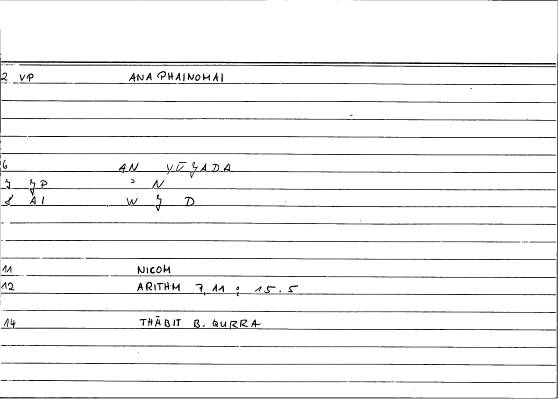 2 VP ANAPHAINOMAI
6 AN YŪʒADA
7 ʒP ʾ N
8 AI W ʒ D
11 NICOM
12 ARITHM 7,11 ; 15.5
14 THĀBIT B. QURRA